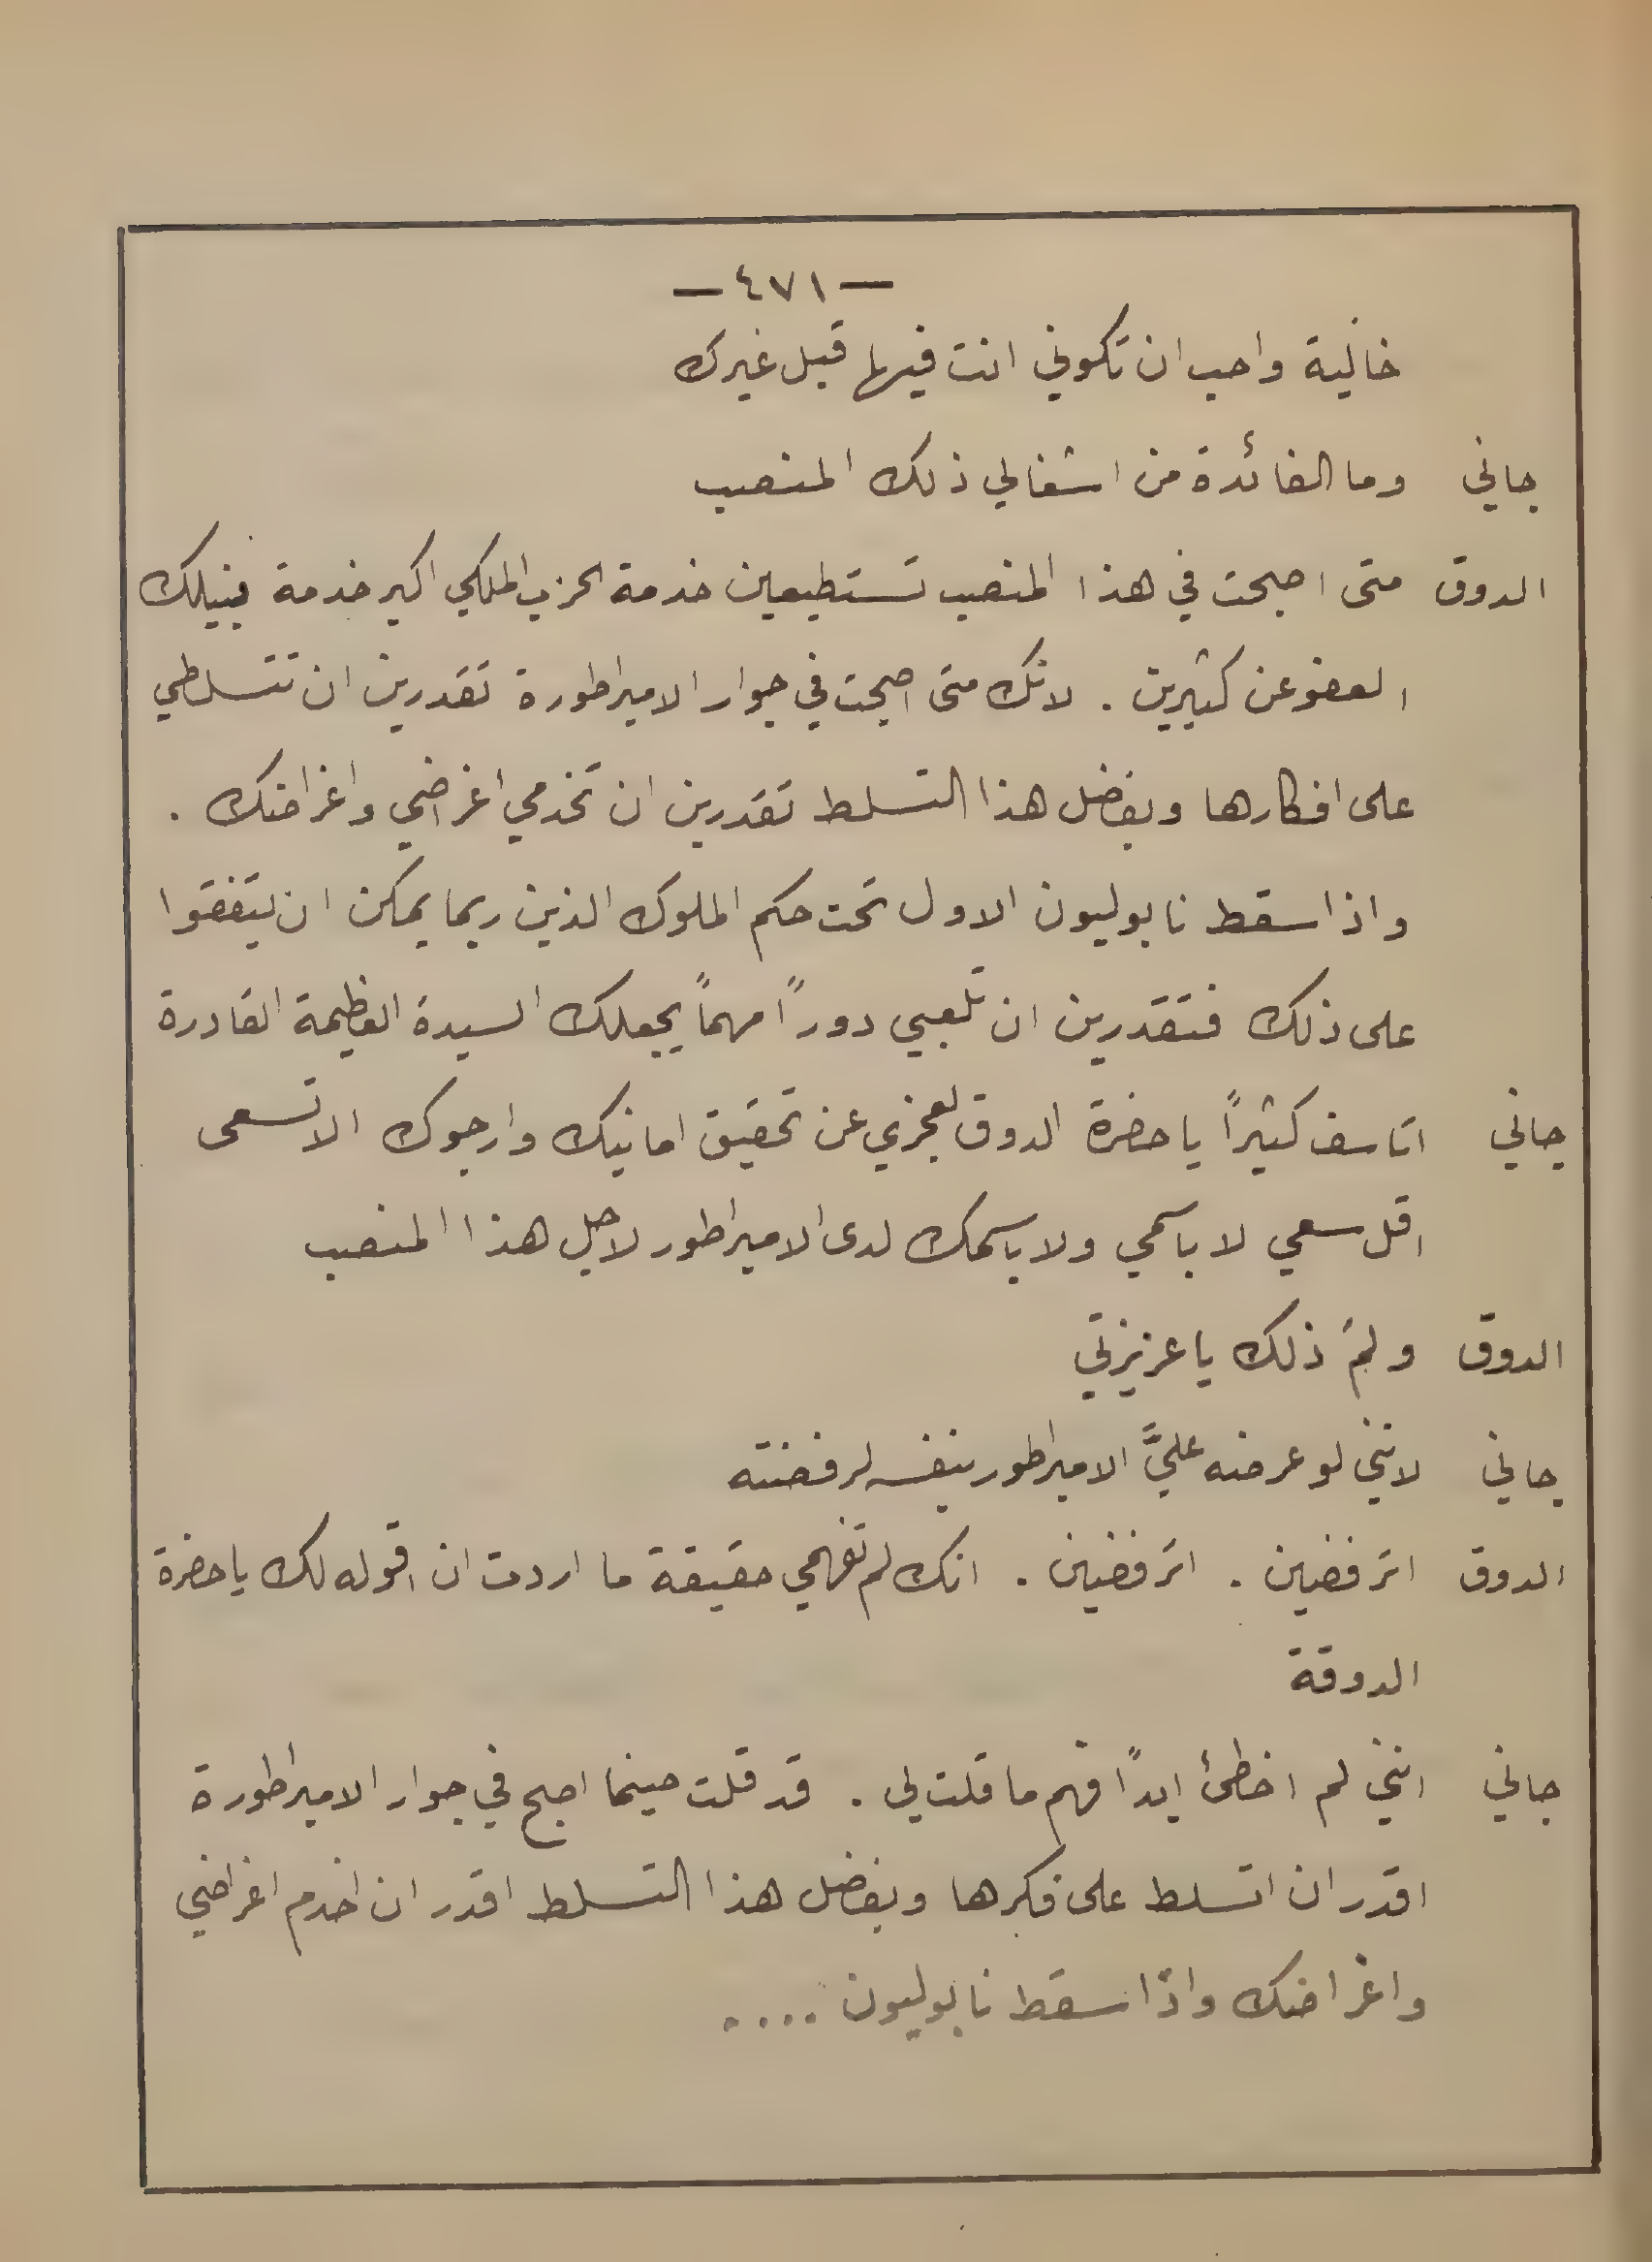 — ٤٧١ —
خالية واحب ان تكوني انت فيها قبل غيرك
جاني وما الفائدة من اشغالي ذلك المنصب
الدوق متى اصبحت في هذا المنصب تستطيعين خدمة الحزب الملكي اكبر خدمة بنيلك
العفو عن كثيرين . لانك متى اصبحت في جوار الاميراطورة تقدرين ان تتسلطي
على افكارها وبفضل هذا التسلط تقدرين ان تخدمي اغراضي واغراضك .
واذا سقط نابوليون الاول تحت حكم الملوك الذين ربما يمكن ان يتفقوا
على ذلك فتقدرين ان تلعبي دوراً مهماً يجعلك السيدة العظيمة القادرة
جاني اتاسف كثيراً يا حضرة الدوق لعجزي عن تحقيق امانيك وارجوك الا تسعى
اقل سعي لا باسمي ولا باسمك لدى الاميراطور لاجل هذا المنصب
الدوق ولمَ ذلك يا عزيزتي
جاني لانني لو عرضه عليَّ الاميراطور بنفسه لرفضته
الدوق اترفضين . اترفضين . انك لم تفهمي حقيقة ما اردت ان اقوله لك يا حضرة
الدوقة
جاني انني لم اخطئ ابداً فهم ما قلت لي . قد قلت حينما اصبح في جوار الاميراطورة
اقدر ان اتسلط على فكرها وبفضل هذا التسلط اقدر ان اخدم اغراضي
واغراضك واذا سقط نابوليون ....